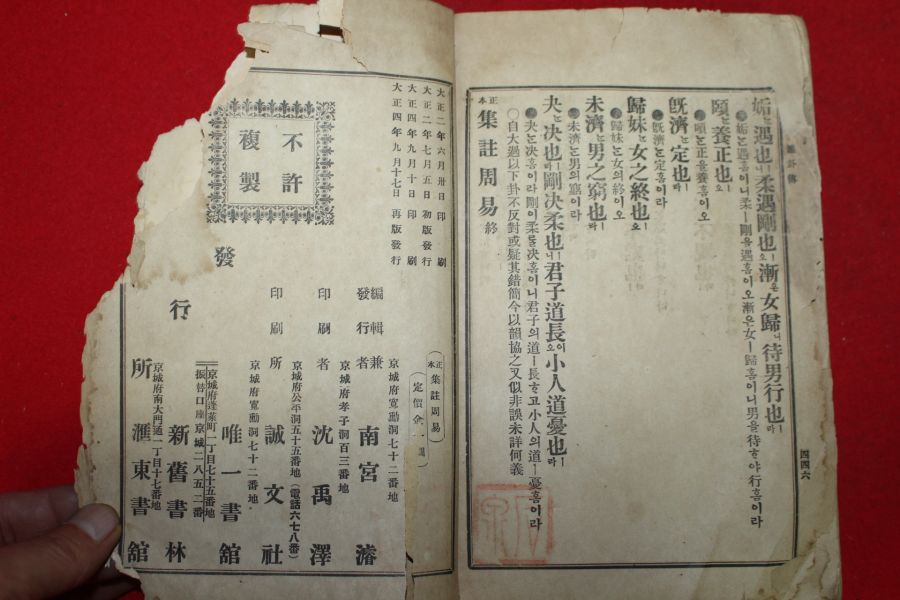 姤는遇也ㅣ니柔遇剛也ㅣ오漸은女歸ㅣ니待男行也ㅣ라
姤는遇홈이니柔ㅣ剛을遇홈이오漸은女ㅣ歸홈이니男을待하야行홈이라
頤는養正也ㅣ오
頤는正을養홈이오
旣濟는定也ㅣ라
旣濟는定홈이라
歸妹는女之終也ㅣ오
歸妹는女의終이오
未濟는男之窮也ㅣ라
未濟는男의窮이라
夬는決也ㅣ라剛決柔也ㅣ니君子道長이오小人道憂也ㅣ라
夬는決홈이라剛이柔를決홈이니君子의道ㅣ長하고小人의道ㅣ憂홈이라
○自大過以下卦不反對或疑其錯簡今以韻協之又似非誤未詳何義
正本集註周易 終
四四六
大正二年六月卅日印刷
大正二年七月五日初版發行
大正四年九月十日印刷
大正四年九月十七日再版發行
不許
複製
正本集註周易
定價金
京城府寬勳洞七十二番地
編輯兼發行者 南宮濬
京城府孝子洞百三番地
印刷者 沈禹澤
京城府公平洞五十五番地(電話六七八番)
印刷所 誠文社
京城府寬勳洞七十二番地
發行所
唯一書舘
京城府蓬萊町一丁目七十五番地
振替口座京城二八五二番
新舊書林
京城府南大門通一丁目十七番地
滙東書舘